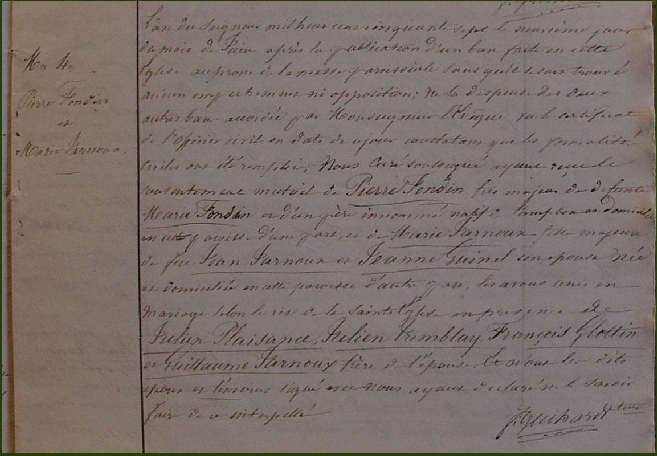 Mar. 4e
Pierre Fondin
et
Marie Jarnoux.
L'an du Seigneur mil huit cens cinquante sept le neuvième jour
du mois de Juin après la publication d'un ban faite en cette
Eglise au prone de la messe paroissiale sans qu'il se soit trouvé
aucun empêchement ni opposition; vu la dispense des deux
autres bans accordée par Monseigneur l'Evêque vu le certificat
de l'officier civil en date de ce jour constatant que les formalités
civiles ont été remplies, Nous Curé soussigné ayant reçu le
consentement mutuel de Pierre Fondin fils majeur de défunte
Marie Fondin et d'un père innommé natif de Campbon et domicilié
en cette paroisse d'une part, et de Marie Jarnoux fille majeure
de feu Jean Jarnoux et Jeanne Guinel son épouse née
et domiciliée en cette paroisse d'autre part, les avons unis en
mariage selon le rit de la Sainte Eglise en présence de
Julien Plaisance, Julien Tremblay, François Glottin
et Guillaume Jarnoux frère de l'épouse. Les dits
époux et témoins avec Nous ayant déclaré ne le savoir
faire de ce interpellé
J. Guihard